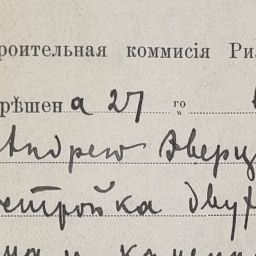 роительная коммисія Ри
рѣшен а 27 го
Андрею Эверц
стройка двух